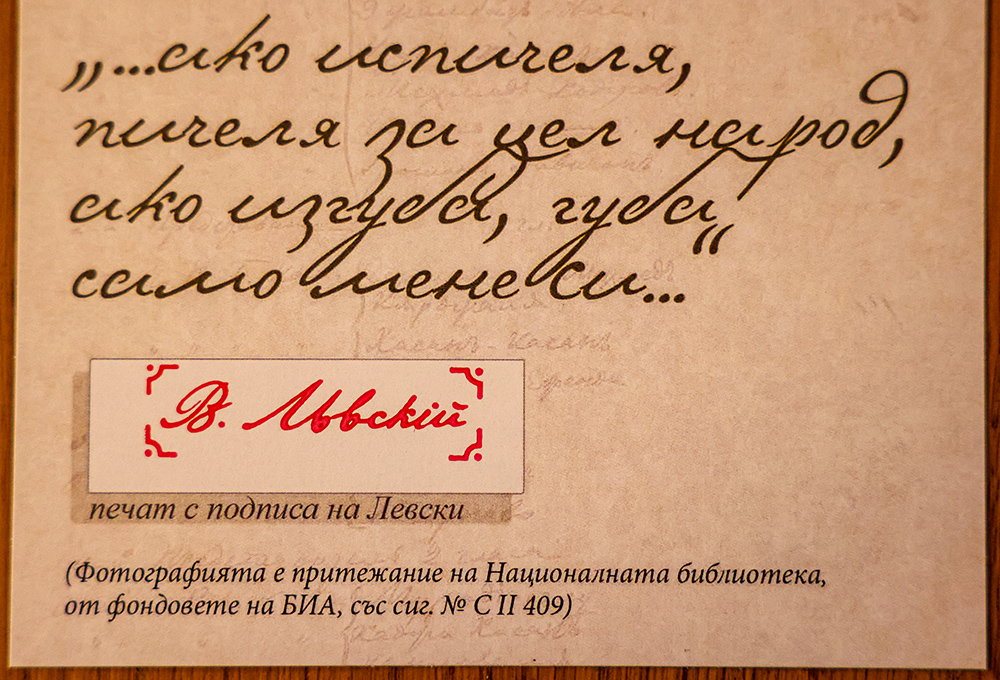 „...ако испичеля,
пичеля за цел народ,
ако изгубя, губя
само мене си...“
В. Лѣвскій
печат с подписа на Левски
(Фотографията е притежание на Националната библиотека,
от фондовете на БИА, със сиг. № С II 409)